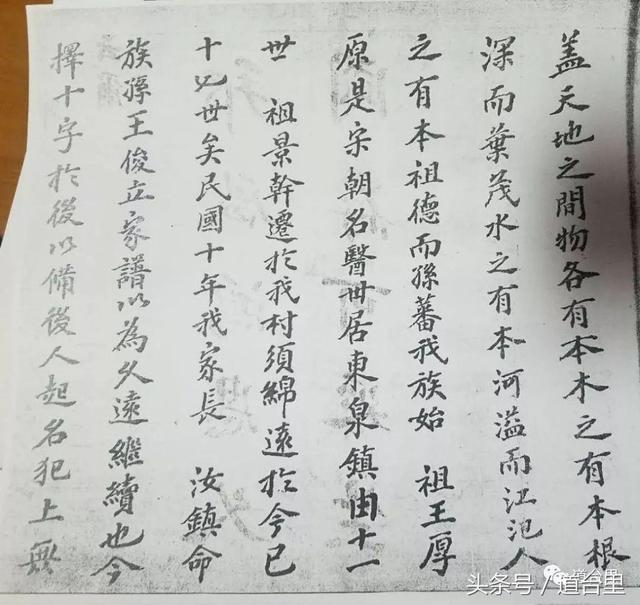 盖天地之間物各有本木之有本根
深而葉茂水之有本河溢而江汜人
之有本祖德而孫蕃我族始 祖王厚
原是宋朝名醫世居東泉鎮由十一
世 祖景幹遷於我村須綿遠於今已
十七世矣民國十年我家長 汝鎮命
族孫王俊立家譜以為久遠繼續也今
擇十字於後以備後人起名犯上無
头条号/道台里
道台里